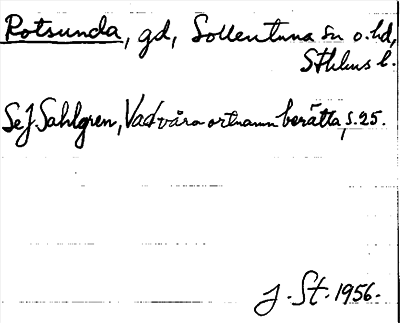 Rotsunda, gd, Sollentuna sn o. hd,
Sthlms l.
Se J. Sahlgren, Vad våra ortnamn berätta, s. 25.
J. St. 1956.